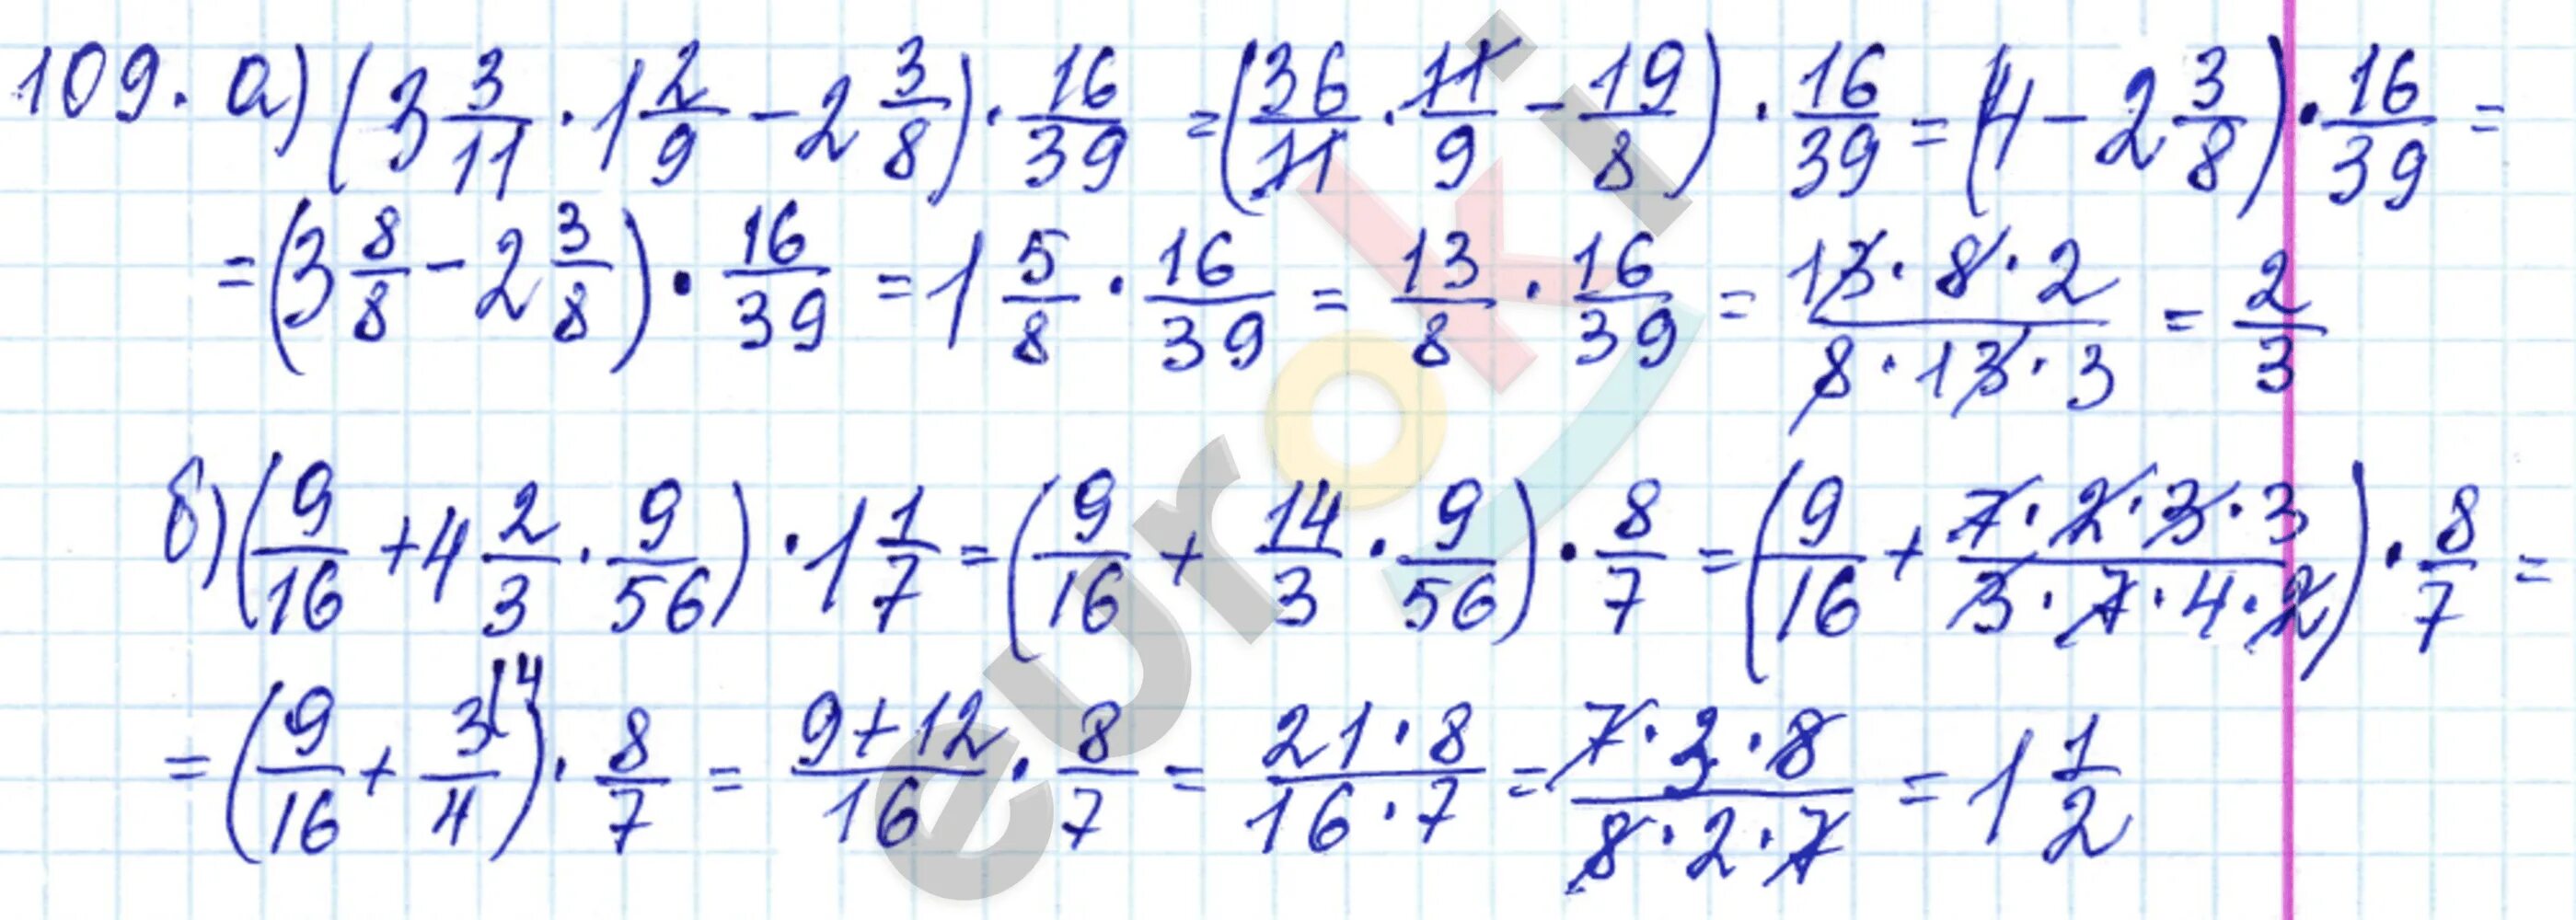 109. а) (3 3/11 · 1 2/9 - 2 3/8) · 16/39 = (36/11 · 11/9 - 19/8) · 16/39 = (4 - 2 3/8) · 16/39 =
= (3 8/8 - 2 3/8) · 16/39 = 1 5/8 · 16/39 = 13/8 · 16/39 = 13·8·2/8·13·3 = 2/3
б) (9/16 + 4 2/3 · 9/56) · 1 1/7 = (9/16 + 14/3 · 9/56) · 8/7 = (9/16 + 7·2·3·3/3·7·4·2) · 8/7 =
= (9/16 + 3/4 (4) · 8/7 = 9+12/16 · 8/7 = 21·8/16·7 = 7·3·8/8·2·7 = 1 1/2
euroki